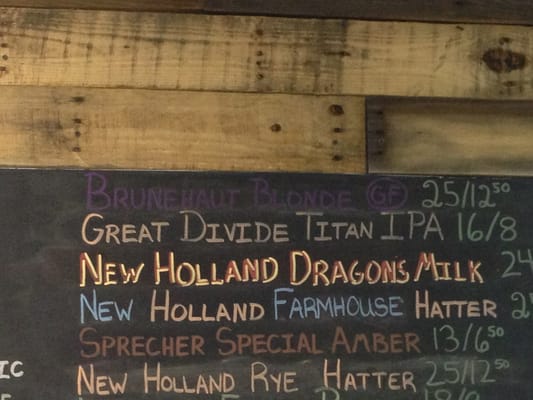 BRUNEHAUT BLONDE GF 25/12⁵⁰
GREAT DIVIDE TITAN IPA 16/8
NEW HOLLAND DRAGONS MILK 24
NEW HOLLAND FARMHOUSE HATTER
SPRECHER SPECIAL AMBER 13/6⁵⁰
IC
NEW HOLLAND RYE HATTER 25/12⁵⁰